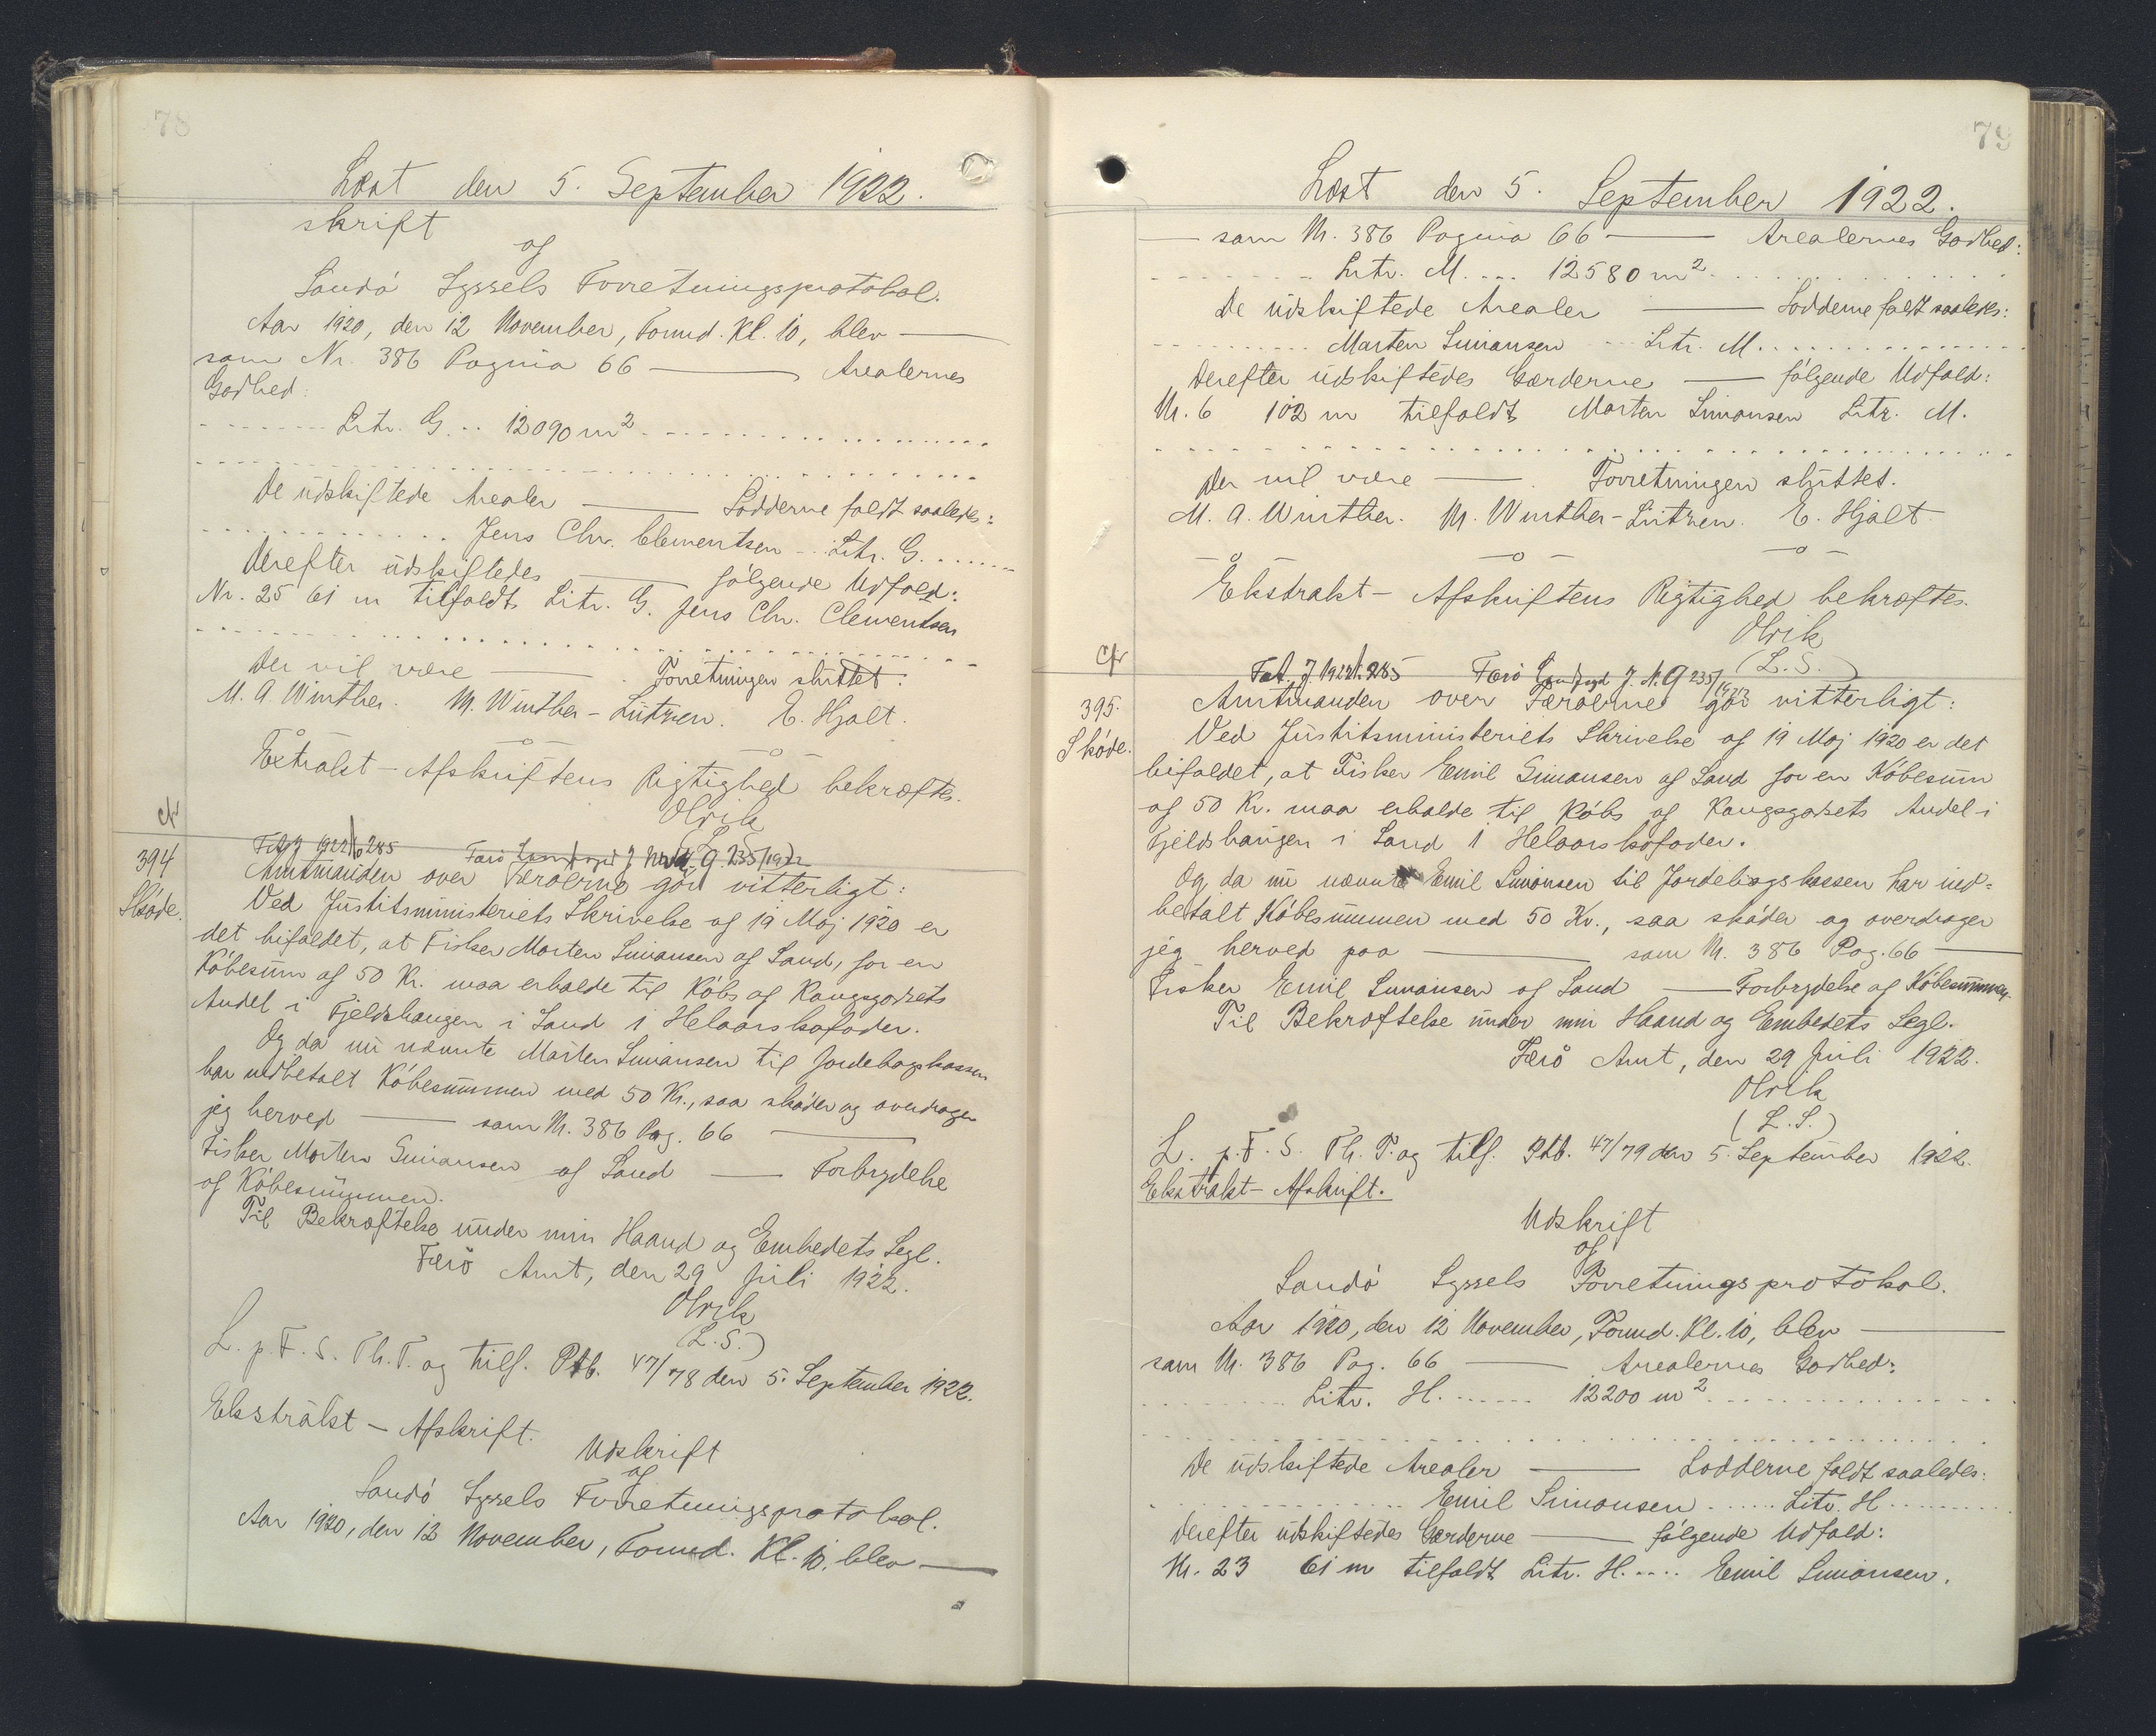 78
Læst den 5. September 1922.
skrift
af
Sandö Syssels Forretningsprotokol.
Aar 1920, den 12 November, Formd. Kl. 10, blev —
som Nr. 386 Pagina 66 — Arealernes
Godhed:
Litr. G. .. 12090 m²
De udskiftede Arealer — Lodderne faldt saaledes:
Jens Chr. Clementsen ... Litr. G.
Derefter udskiftedes — følgende Udfald:
Nr. 25 61 m tilfaldt Litr. G. Jens Chr. Clementsen
Der vil være — Forretningen sluttet.
M. A. Winther. M. Winther-Lützen. E. Hjalt.
Extrakt-Afskriftens Rigtighed bekræftes.
Olrik
(L.S.)
cfr
394
Skøde.
Amtmanden over Færøerne gör vitterligt:
Ved Justitsministeriets Skrivelse af 19 Maj 1920 er
det bifaldet, at Fisker Morten Simonsen af Sand, for en
Köbesum af 50 Kr. maa erholde til Köbs af Kongsgodsets
Andel i Fjeldshaugen i Sand 1 Helaarskofoder.
Og da nu nævnte Morten Simonsen til Jordebogskassen
har indbetalt Köbesummen med 50 Kr., saa sköder og overdrager
jeg herved — som Nr. 386 Pag. 66 —
Fisker Morten Simonsen af Sand — Forbrydelse
af Köbesummen.
Til Bekræftelse under min Haand og Embedets Segl.
Færö Amt, den 29 Juli 1922.
Olrik
(L.S.)
L. p. F. S. Th. T. og tilf. Ptb. 47/78 den 5. September 1922.
Ekstrakt-Afskrift.
Udskrift
af
Sandö Syssels Forretningsprotokol.
Aar 1920, den 12 November, Formd. Kl. 10, blev —
79
Læst den 5. September 1922.
— som Nr. 386 Pagina 66 — Arealernes Godhed:
Litr. M. ... 12580 m²
De udskiftede Arealer — Lodderne faldt saaledes:
Morten Simonsen ... Litr. M.
Derefter udskiftedes Gærderne — følgende Udfald:
Nr. 6 102 m tilfaldt Morten Simonsen Litr. M.
Der vil være — Forretningen sluttet.
M. A. Winther. M. Winther-Lützen. E. Hjalt
Ekstrakt-Afskriftens Rigtighed bekræftes.
Olrik
(L.S.)
cfr
395.
Skøde.
Amtmanden over Færøerne gör vitterligt:
Ved Justitsministeriets Skrivelse af 19 Maj 1920 er det
bifaldet, at Fisker Emil Simonsen af Sand for en Köbesum
af 50 Kr. maa erholde til Köbs af Kongsgodsets Andel i
Fjeldshaugen i Sand 1 Helaarskofoder.
Og da nu nævnte Emil Simonsen til Jordebogskassen har ind-
betalt Köbesummen med 50 Kr., saa sköder og overdrager
jeg herved paa — som Nr. 386 Pag. 66 —
Fisker Emil Simonsen af Sand — Forbrydelse af Köbesummen.
Til Bekræftelse under min Haand og Embedets Segl.
Færö Amt, den 29 Juli 1922.
Olrik
(L.S.)
L. p. F. S. Th. T. og tilf. Ptb. 47/79 den 5. September 1922.
Ekstrakt-Afskrift.
Udskrift
af
Sandö Syssels Forretningsprotokol.
Aar 1920, den 12 November, Formd. Kl. 10, blev —
som Nr. 386 Pag. 66 — Arealernes Godhed:
Litr. H. ... 12200 m²
De udskiftede Arealer — Lodderne faldt saaledes:
Emil Simonsen ... Litr. H
Derefter udskiftedes Gærderne — følgende Udfald:
Nr. 23 61 m tilfaldt Litr. H. .... Emil Simonsen.